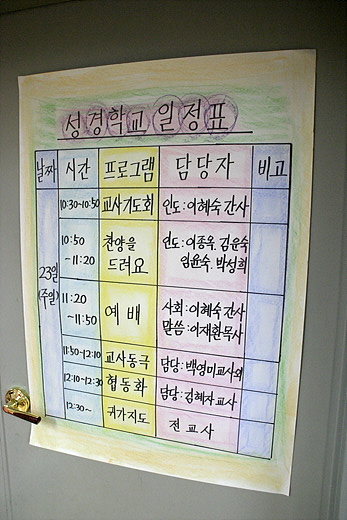 성경학교 일정표
날짜 시간 프로그램 담당자 비고
23일
(주일)
10:30~10:50 교사기도회 인도:이혜숙 간사
10:50
~11:20
찬양을
드려요
인도:이종옥 김윤숙
임윤숙. 박성희
11:20
~11:50
예배
사회:이혜숙 간사
말씀:이재환목사
11:50~12:10 교사동극 담당:백영미교사외
12:10~12:30 협동화 담당:김혜자교사
12:30~ 귀가지도 전교사